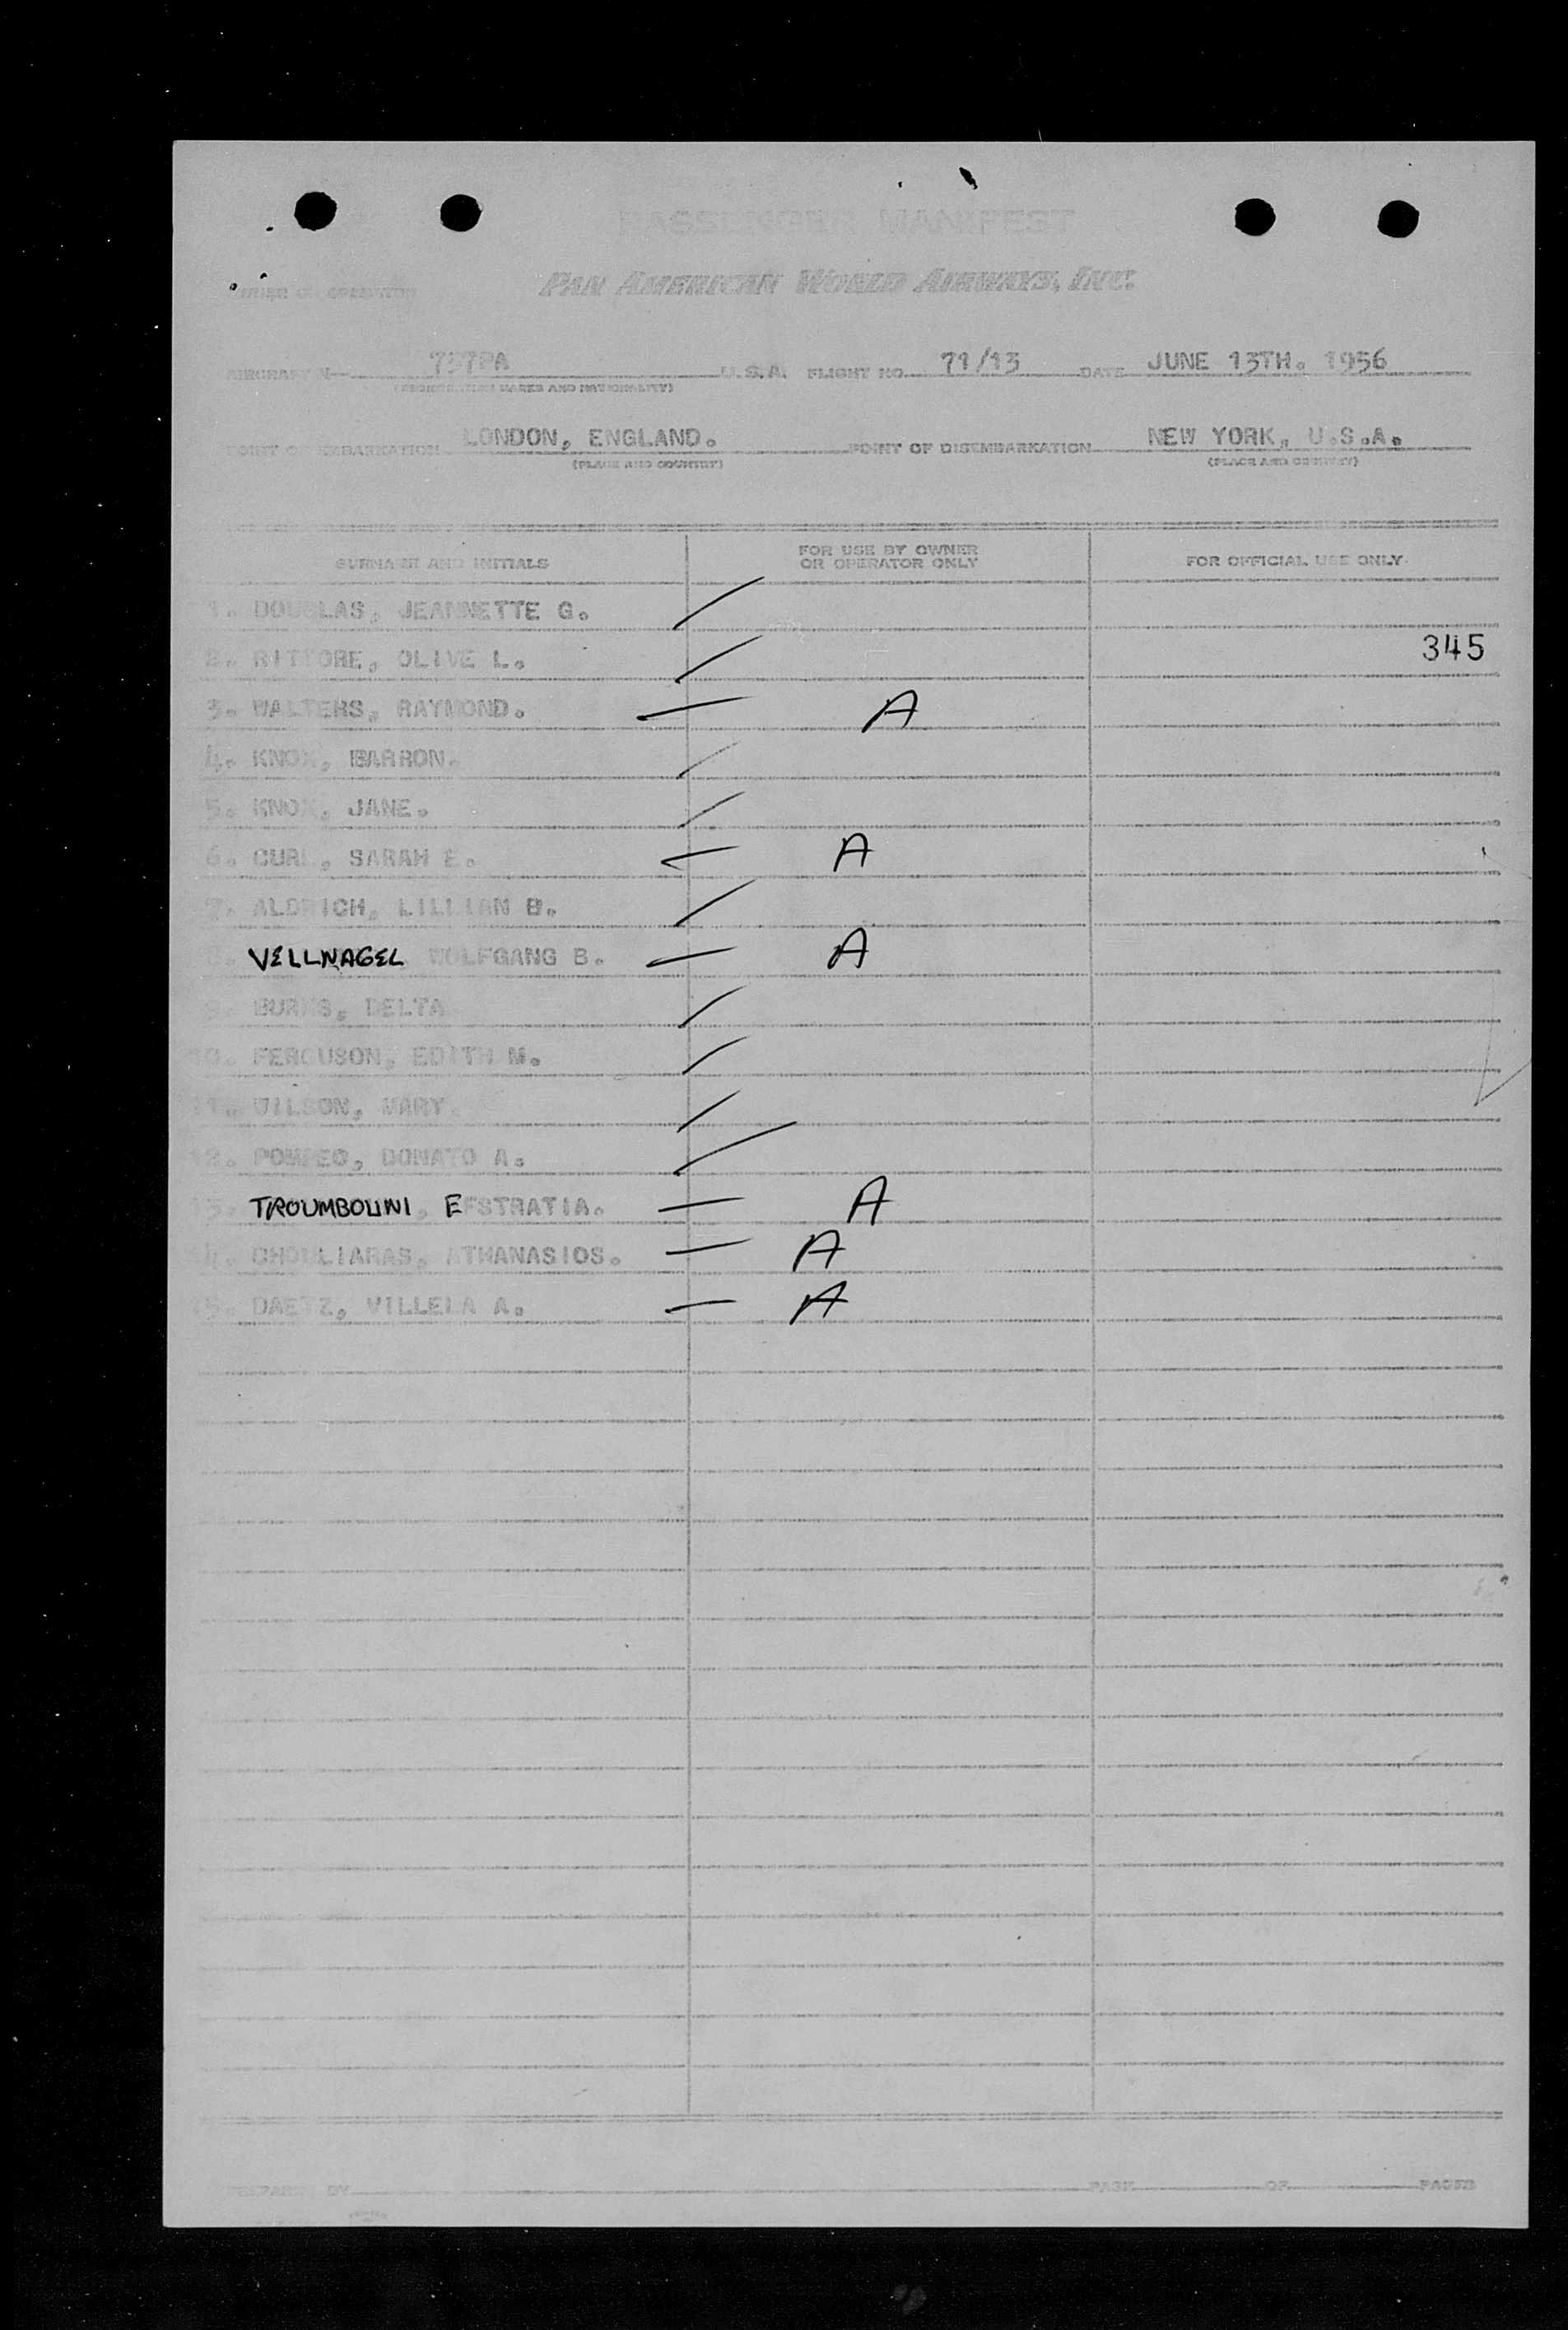 PASSENGER MANIFEST
PAN AMERICAN WORLD AIRWAYS, INC.
OWNER OR OPERATOR
AIRCRAFT N— 737PA U.S.A. FLIGHT NO. 71/13 DATE JUNE 13TH. 1956
(REGISTRATION MARKS AND NATIONALITY)
POINT OF EMBARKATION LONDON, ENGLAND. POINT OF DISEMBARKATION NEW YORK, U.S.A.
(PLACE AND COUNTRY) (PLACE AND COUNTRY)
SURNAME AND INITIALS FOR USE BY OWNER OR OPERATOR ONLY FOR OFFICIAL USE ONLY
1. DOUGLAS, JEANNETTE G.
2. RITTORE, OLIVE L. 345
3. WALTERS, RAYMOND. A
4. KNOX, BARRON.
5. KNOX, JANE.
6. CURL, SARAH E. A
7. ALDRICH, LILLIAN B.
VELLNAGEL WOLFGANG B. A
9. BURNS, DELTA
10. FERGUSON, EDITH M.
11. WILSON, MARY.
12. POMPEO, DONATO A.
TROUMBOUNI, EFSTRATIA. A
14. CHOULIARAS, ATHANASIOS. A
15. DAETZ, VILLELA A. A
PREPARED BY PAGE OF PAGES